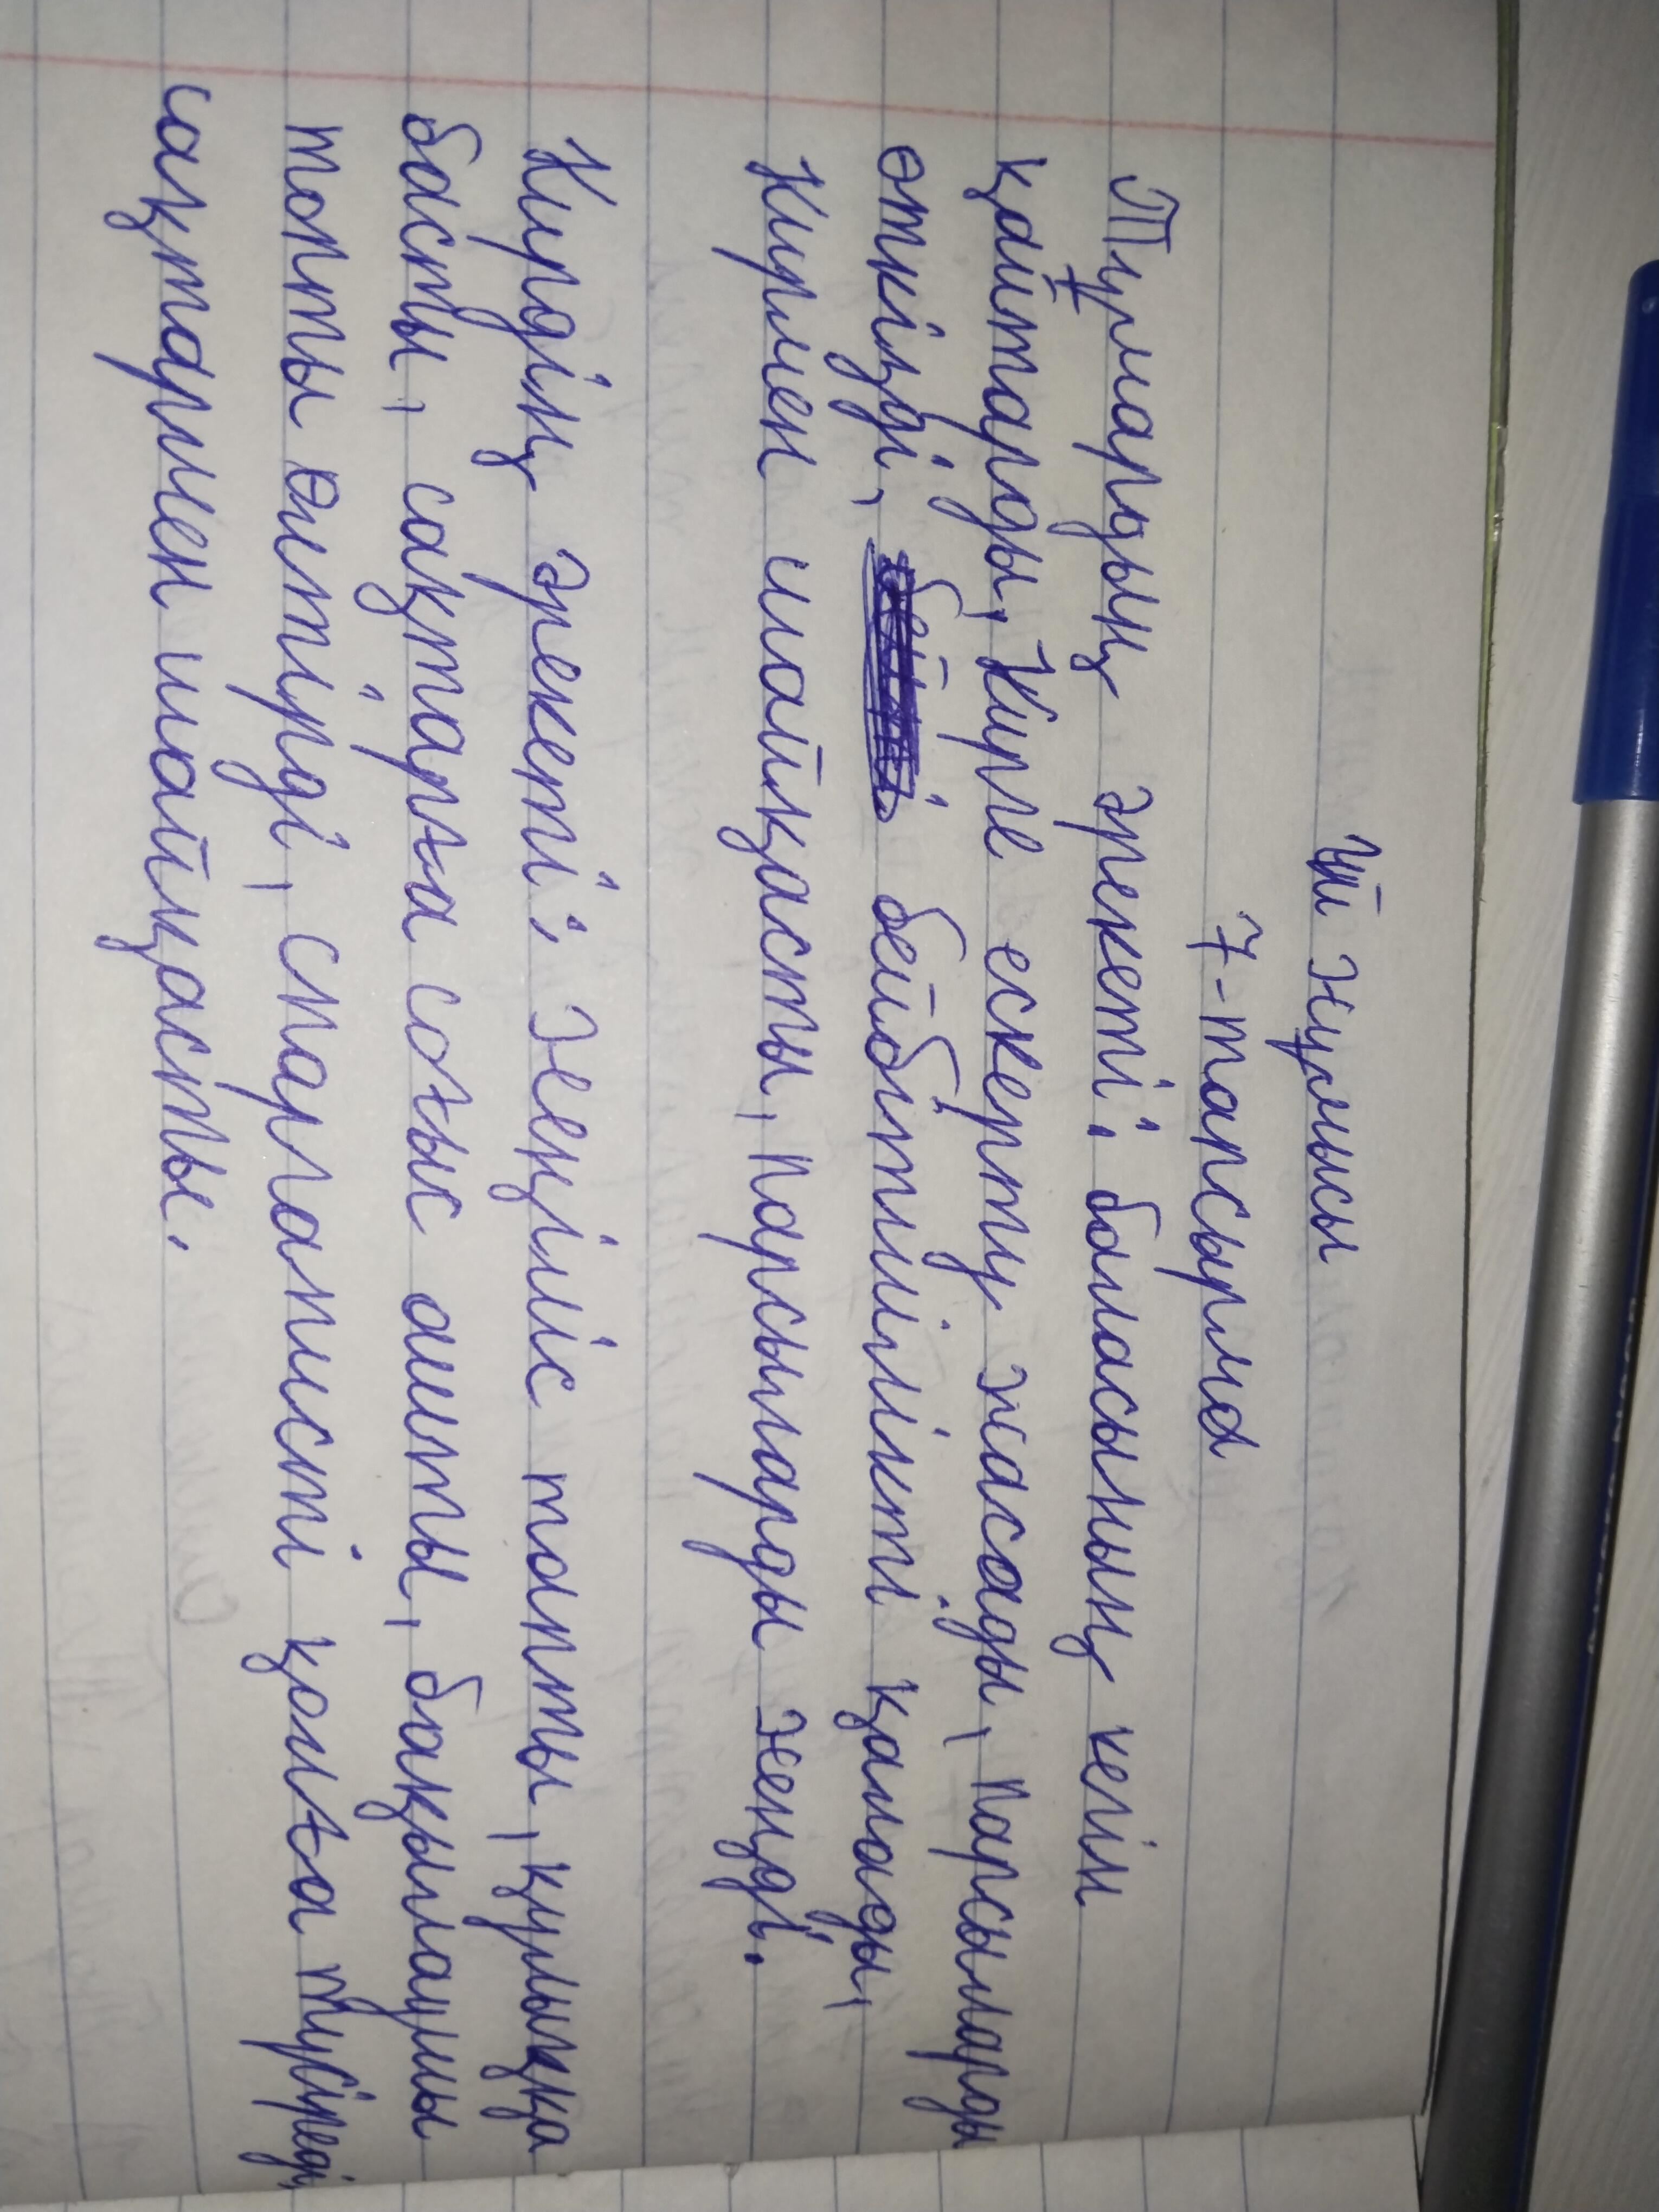 Үй жұмысы
7-тапсырма
Тұмардың әрекеті: баласының кегін
қайтарды, Кирге ескерту жасады, парсыларды
өткізді, бейбітшілікті қалады,
Кирмен шайқасты, парсыларды жеңді.
Кирдің әрекеті: жеңіліс тапты, құлыққа
басты, сақтарға соғыс ашты, бақылаушы
топты өлтірді, спаргаписті қолға түсіреді,
сақтармен шайқасты.